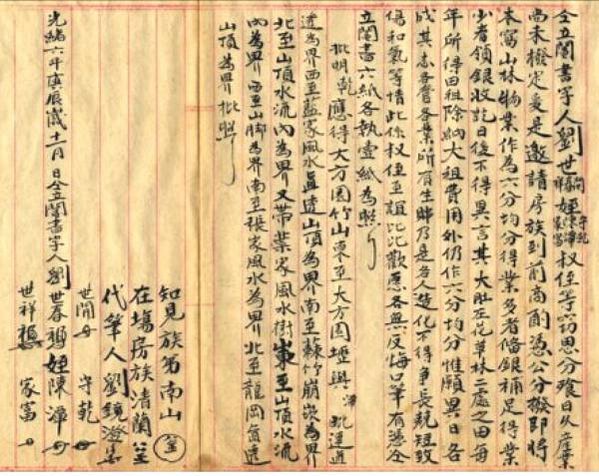 仝立鬮書字人劉世開祥春福姪陳潭守乾家富权侄等窃思分飱日久產業
尚未撥定爰是邀請房族到前商酌憑公分撥即將
本富山林物業作為六分均分得業多者俻銀補足得業
少者領銀收訖日後不得異言其大肚在花草林二處之田每
年所得田租除納大租費用外仍作六分均分惟願異日各
成其志各管各業所有生歸乃是各人造化不得争長競短致
傷和氣等情此係权侄至誼比比歡愿各無反悔口筆有憑仝
立鬮書六紙各執壹紙為照
批明乾應得大方園竹山東至大方園壢與潭毗連道
透為界西至藍家風水直透山頂為界南至蔴竹崩崁為界
北至山頂水流內為界又帶葉家風水樹東至山頂水流
內為界西至山脚為界南至張家風水為界北至龍岡直透
山頂為界批照
知見族弟南山
在塲房族清蘭
代筆人劉鏡澄
光緒六年庚辰歲十一月 日仝立鬮書字人劉世春福姪陳潭
世開 守乾
世祥 家富